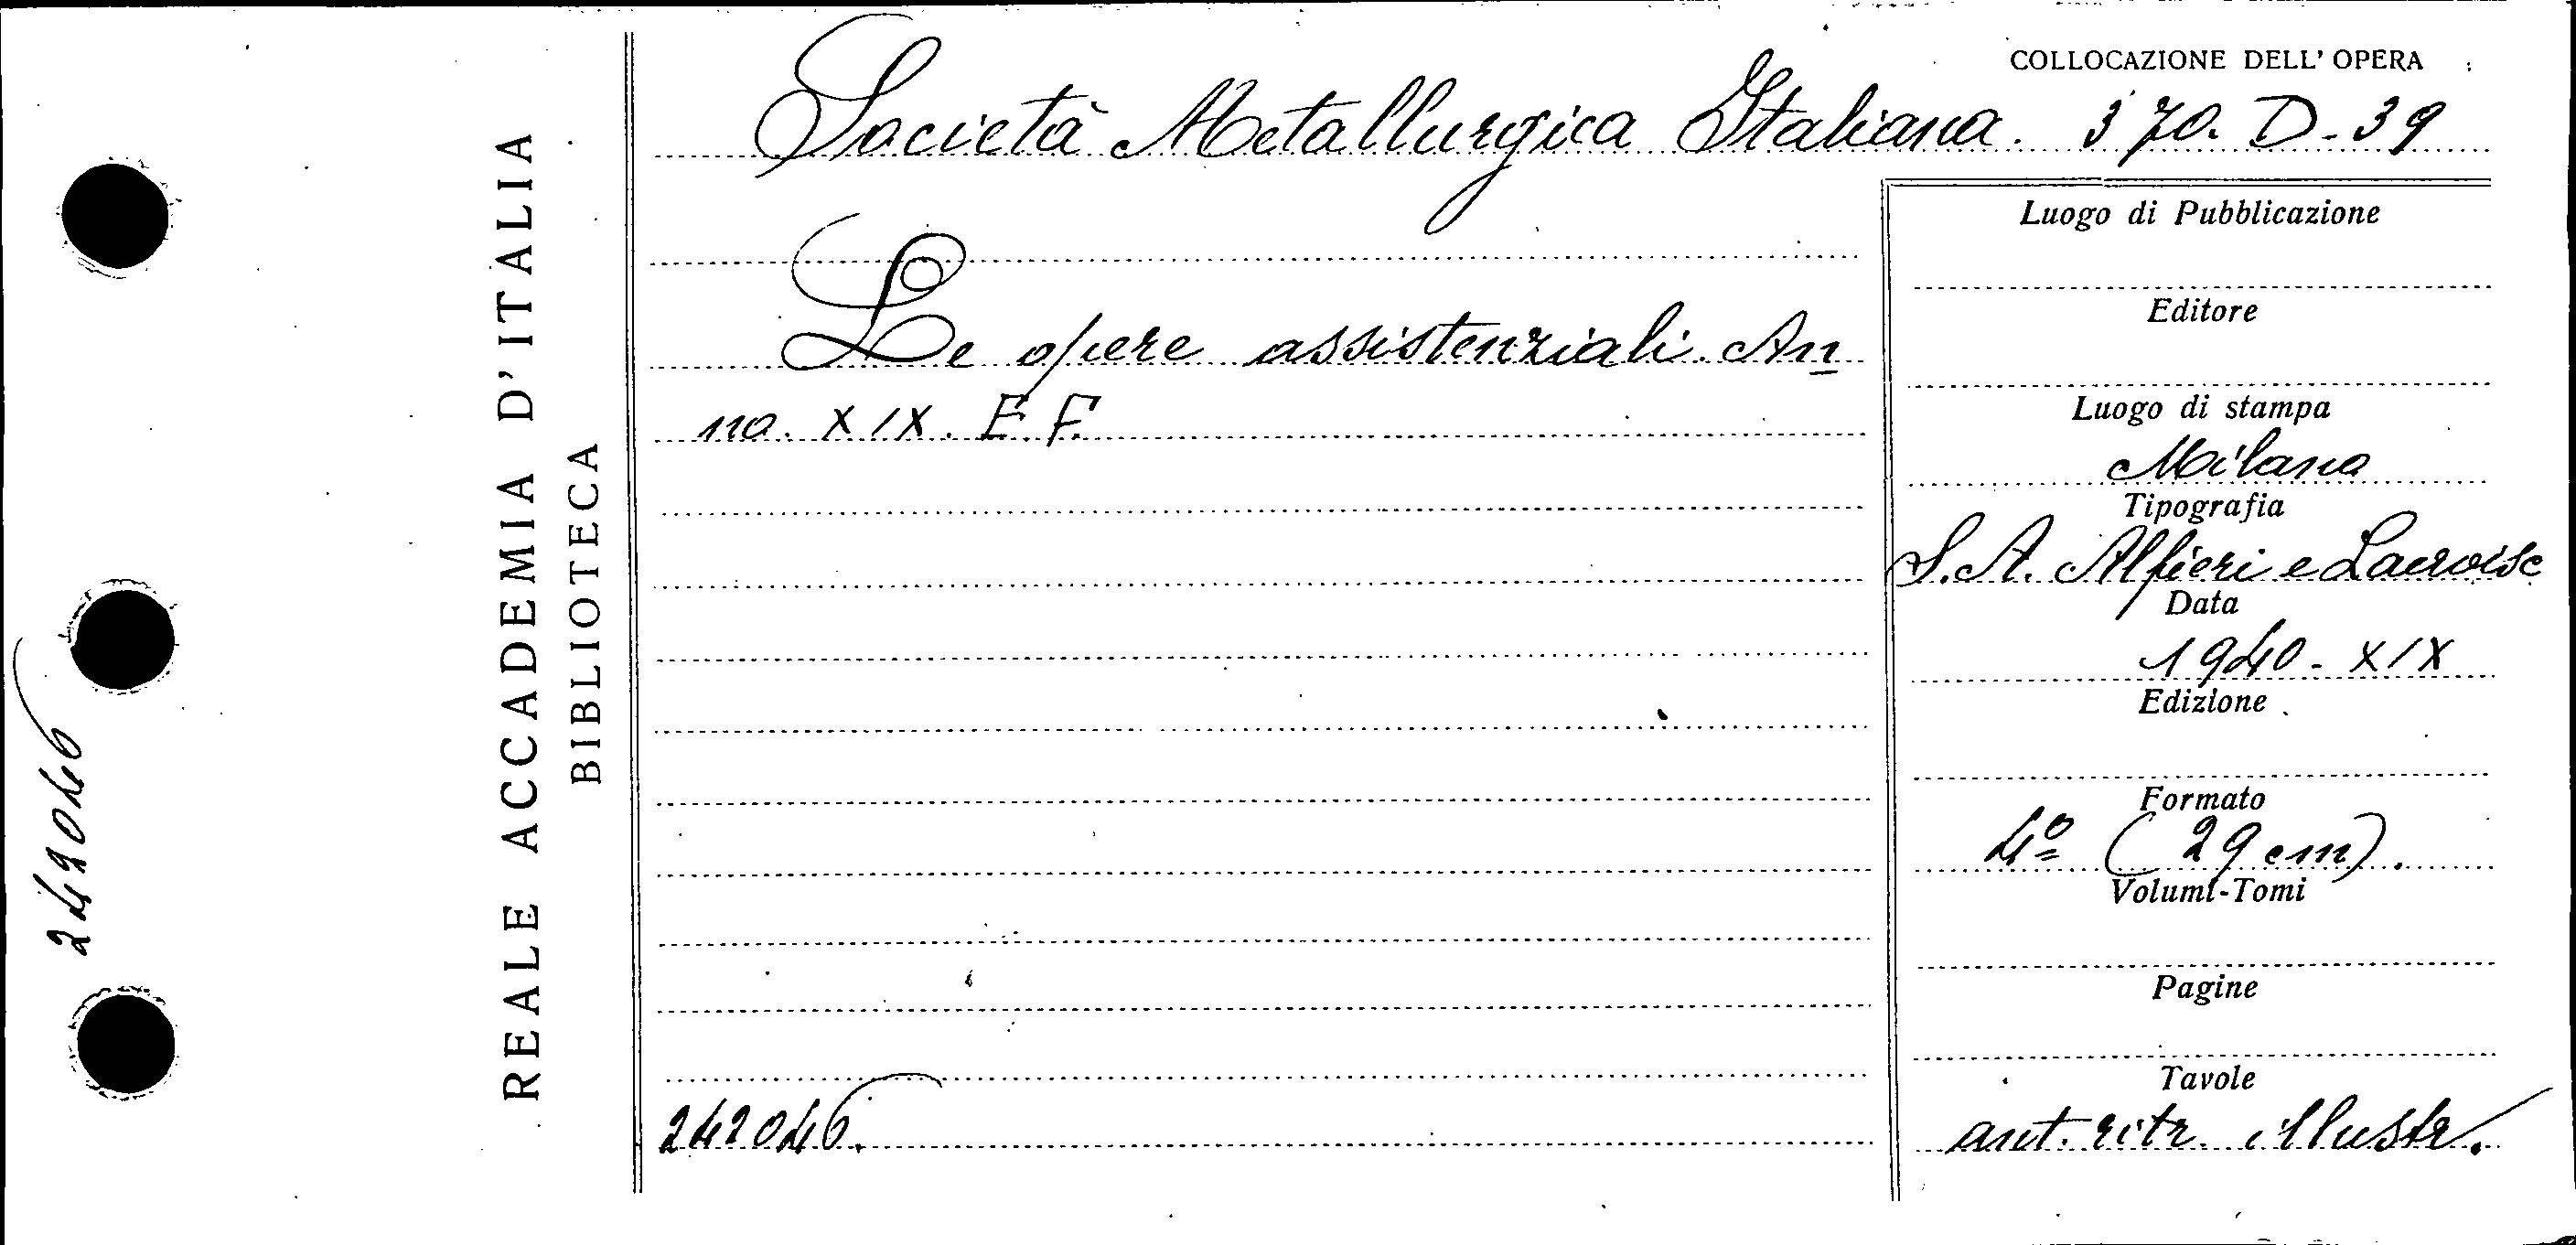 242046
REALE ACCADEMIA D'ITALIA
BIBLIOTECA
COLLOCAZIONE DELL' OPERA
Società Metallurgica Italiana. 370. D. 39
Le opere assistenziali. An
no. XIX. E. F.
242046.
Luogo di Pubblicazione
Editore
Luogo di stampa
Milano
Tipografia
S. A. Alfieri e Lacroix
Data
1940. XIX
Edizione
Formato
4º (29 cm).
Volumi-Tomi
Pagine
Tavole
ant. ritr. illustr.